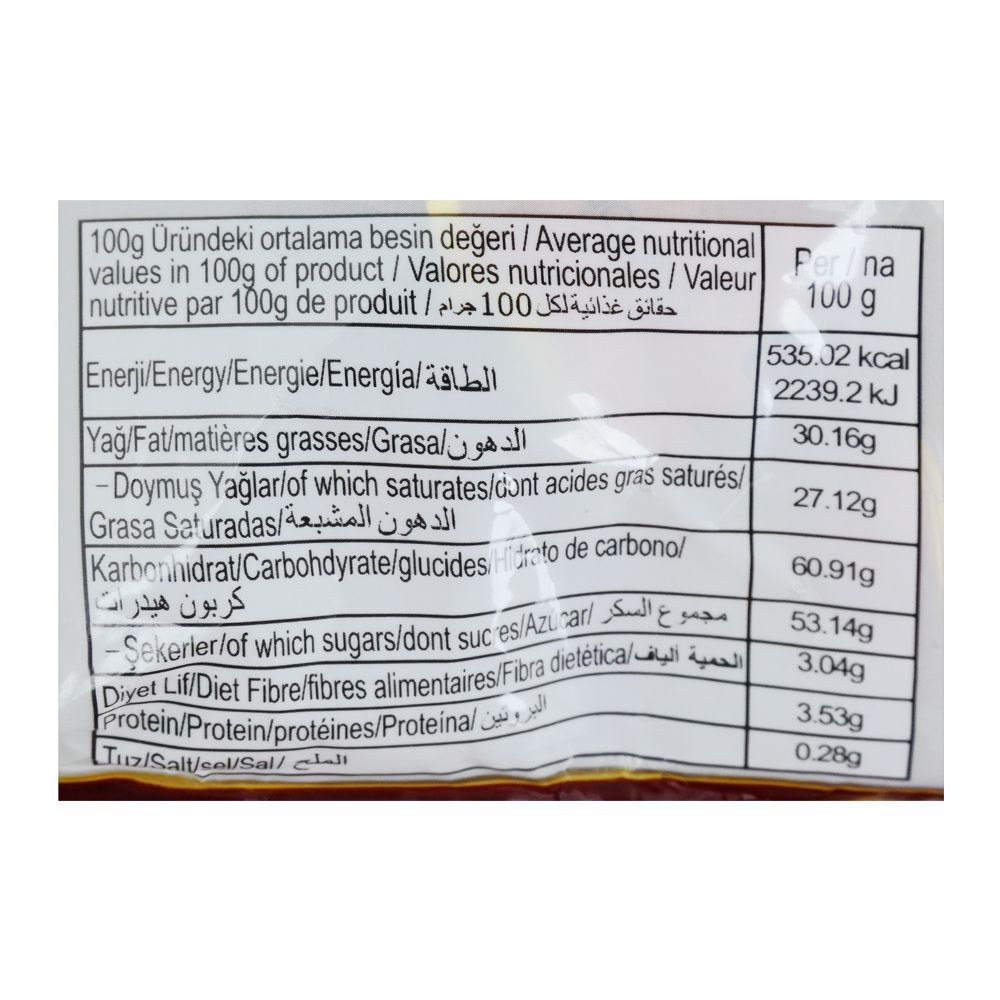 100g Üründeki ortalama besin değeri / Average nutritional
values in 100g of product / Valores nutricionales / Valeur
nutritive par 100g de produit / حقائق غذائية لكل 100 جرام
Per / na
100 g
Enerji/Energy/Energie/Energía/ الطاقة
535.02 kcal
2239.2 kJ
Yağ/Fat/matières grasses/Grasa/ الدهون
30.16g
- Doymuş Yağlar/of which saturates/dont acides gras saturés/
Grasa Saturadas/ الدهون المشبعة
27.12g
Karbonhidrat/Carbohdyrate/glucides/Hidrato de carbono/
كربون هيدرات
60.91g
- Şekerler/of which sugars/dont sucres/Azucar/ مجموع السكر
53.14g
Diyet Lif/Diet Fibre/fibres alimentaires/Fibra dietética/ الحمية ألياف
3.04g
Protein/Protein/protéines/Proteína/ البروتين
3.53g
Tuz/Salt/sel/Sal/ الملح
0.28g